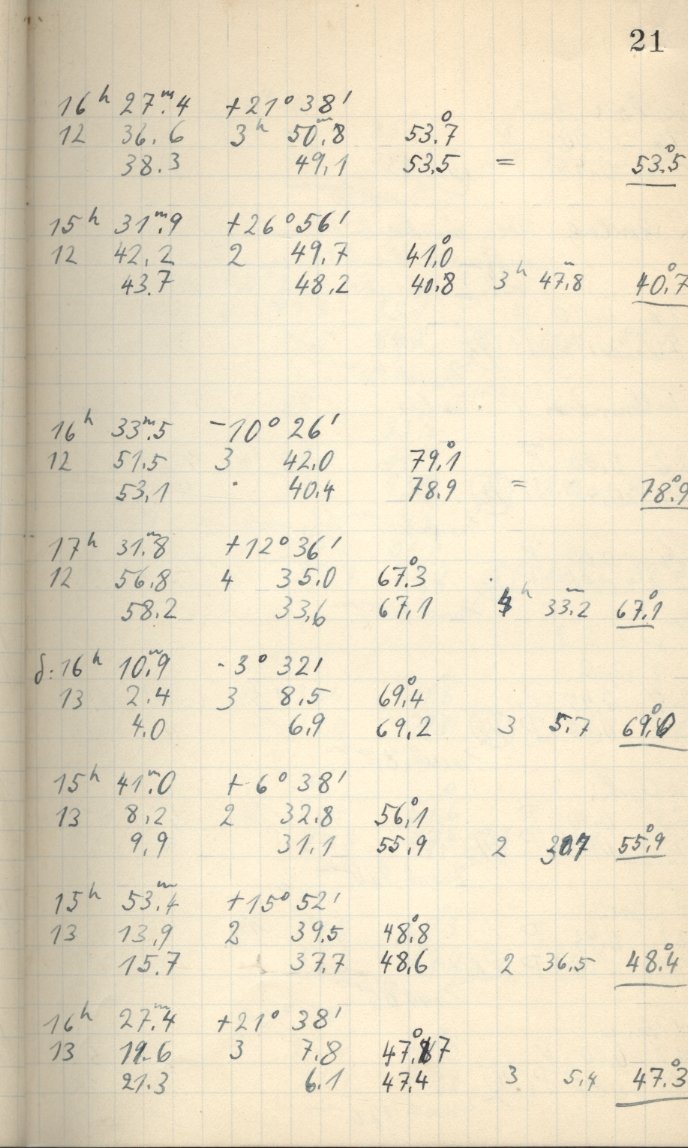 21
16ʰ 27ᵐ.4 +21° 38'
12 36.6 3ʰ 50ᵐ.8 53°.7
38.3 49,1 53,5 = 53°.5
15ʰ 31ᵐ.9 +26° 56'
12 42,2 2 49,7 41°,0
43.7 48,2 40,8 3ʰ 47ᵐ,8 40°,7
16ʰ 33ᵐ.5 -10° 26'
12 51,5 3 42,0 79°,1
53,1 40,4 78.9 = 78°.9
17ʰ 31ᵐ.8 +12° 36'
12 56,8 4 35,0 67°.3
58.2 33,6 67,1 4ʰ 33ᵐ.2 67°,1
δ: 16ʰ 10ᵐ,9 -3° 32'
13 2.4 3 8,5 69°,4
4,0 6,9 69,2 3 5,7 69°,0
15ʰ 41ᵐ.0 +6° 38'
13 8,2 2 32.8 56°,1
9,9 31,1 55,9 2 55°,9
15ʰ 53ᵐ.4 +15° 52'
13 13,9 2 39,5 48°,8
15.7 37,7 48,6 2 36,5 48°.4
16ʰ 27ᵐ.4 +21° 38'
13 19.6 3 7.8
21.3 6.1 47,4 3 5,4 47°.3